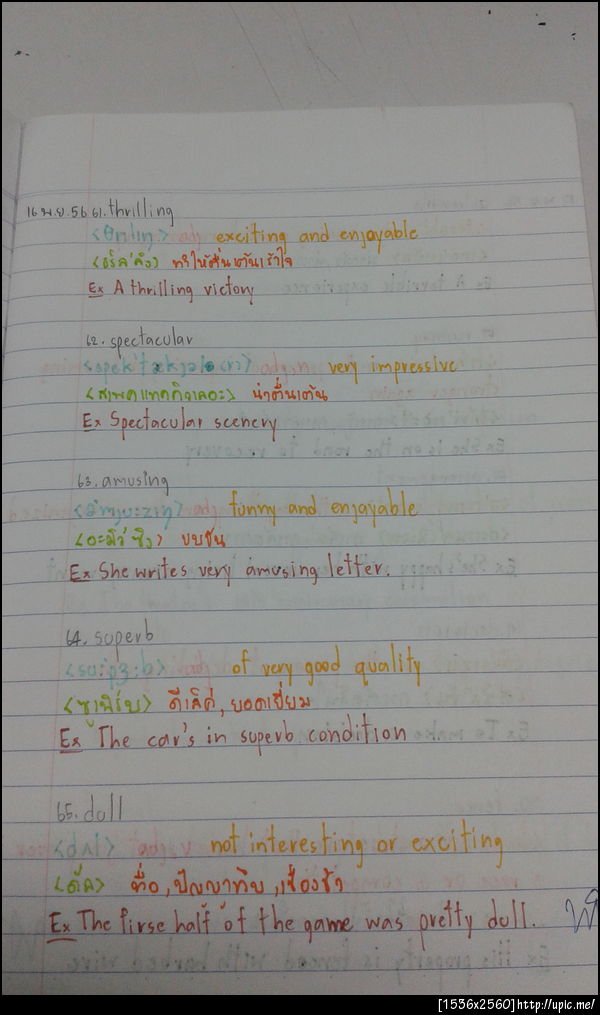 16 พ.ย. 56 61. thrilling
<θrɪlɪŋ> exciting and enjoyable
<ธริล'ลิง> ทำให้ตื่นเต้นเร้าใจ
Ex A thrilling victory
62. spectacular
very impressive
<สเพคแทคคิวเลอะ> น่าตื่นเต้น
Ex Spectacular scenery
63. amusing
<ə'mju:zɪŋ> funny and enjoyable
<อะมิว'ซิง> ขบขัน
Ex She writes very amusing letter.
64. superb
<su:pɜ:b> of very good quality
<ซูเพิร์บ> ดีเลิศ, ยอดเยี่ยม
Ex The car's in superb condition
65. dull
<dʌl> not interesting or exciting
<ดัล> ทื่อ, ปัญญาทึบ, เชื่องช้า
Ex The firse half of the game was pretty dull.
[1536x2560]http://upic.me/